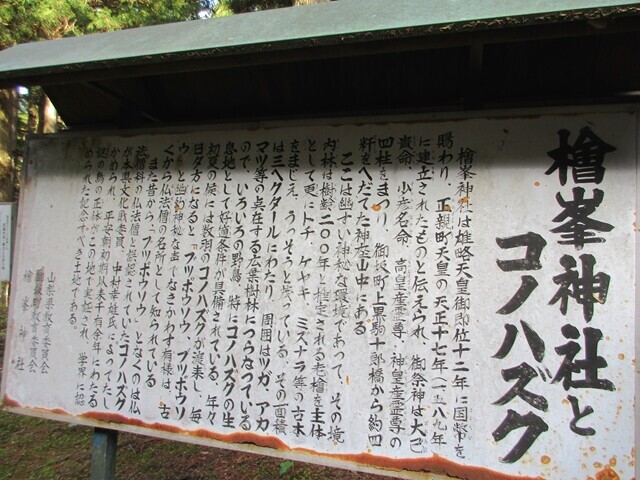 檜峯神社と
コノハズク
檜峯神社は雄略天皇御即位十二年に国幣を
賜わり、正親町天皇の天正十七年(一五八九年)
に建立されたものと伝えられ、御祭神は大己
貴命、少彦名命、高皇産霊尊、神皇産霊尊の
四柱をまつり、御坂町上黒駒十郎橋から約四
粁をへだてた神座山中にある
ここは幽すい神秘な環境であって、その境
内林は樹齢二〇〇年と推定される老檜を主体
として更にトチ、ケヤキ、ミズナラ等の古木
をまじえ、うっそうと茂っている。その面積
は三ヘクタールにわたり、周囲はツガ、アカ
マツ等の点在する広葉樹林につらなっている
ので、いろいろの野鳥、特にコノハズクの生
息地として好適条件が具備されている、年々
初夏の候には数羽のコノハズクが渡来し、毎
日夕方になると「ブッポウソウ、ブッポウソ
ウ」と幽妙神秘な声でなきかわす有様は、古
くから仏法僧の名所として知られている
また昔から「ブッポウソウ」となくのは仏
法僧科の仏法僧と誤認されていたコノハズク
が本県文化財委員、中村幸雄氏によってたし
かめられ、平安朝初期以来千有余年にわたる
謎の鳥の正体がこの地で実証され、学界に認
められた記念すべき土地である。
山梨県教育委員会
御坂町教育委員会
檜峯神社